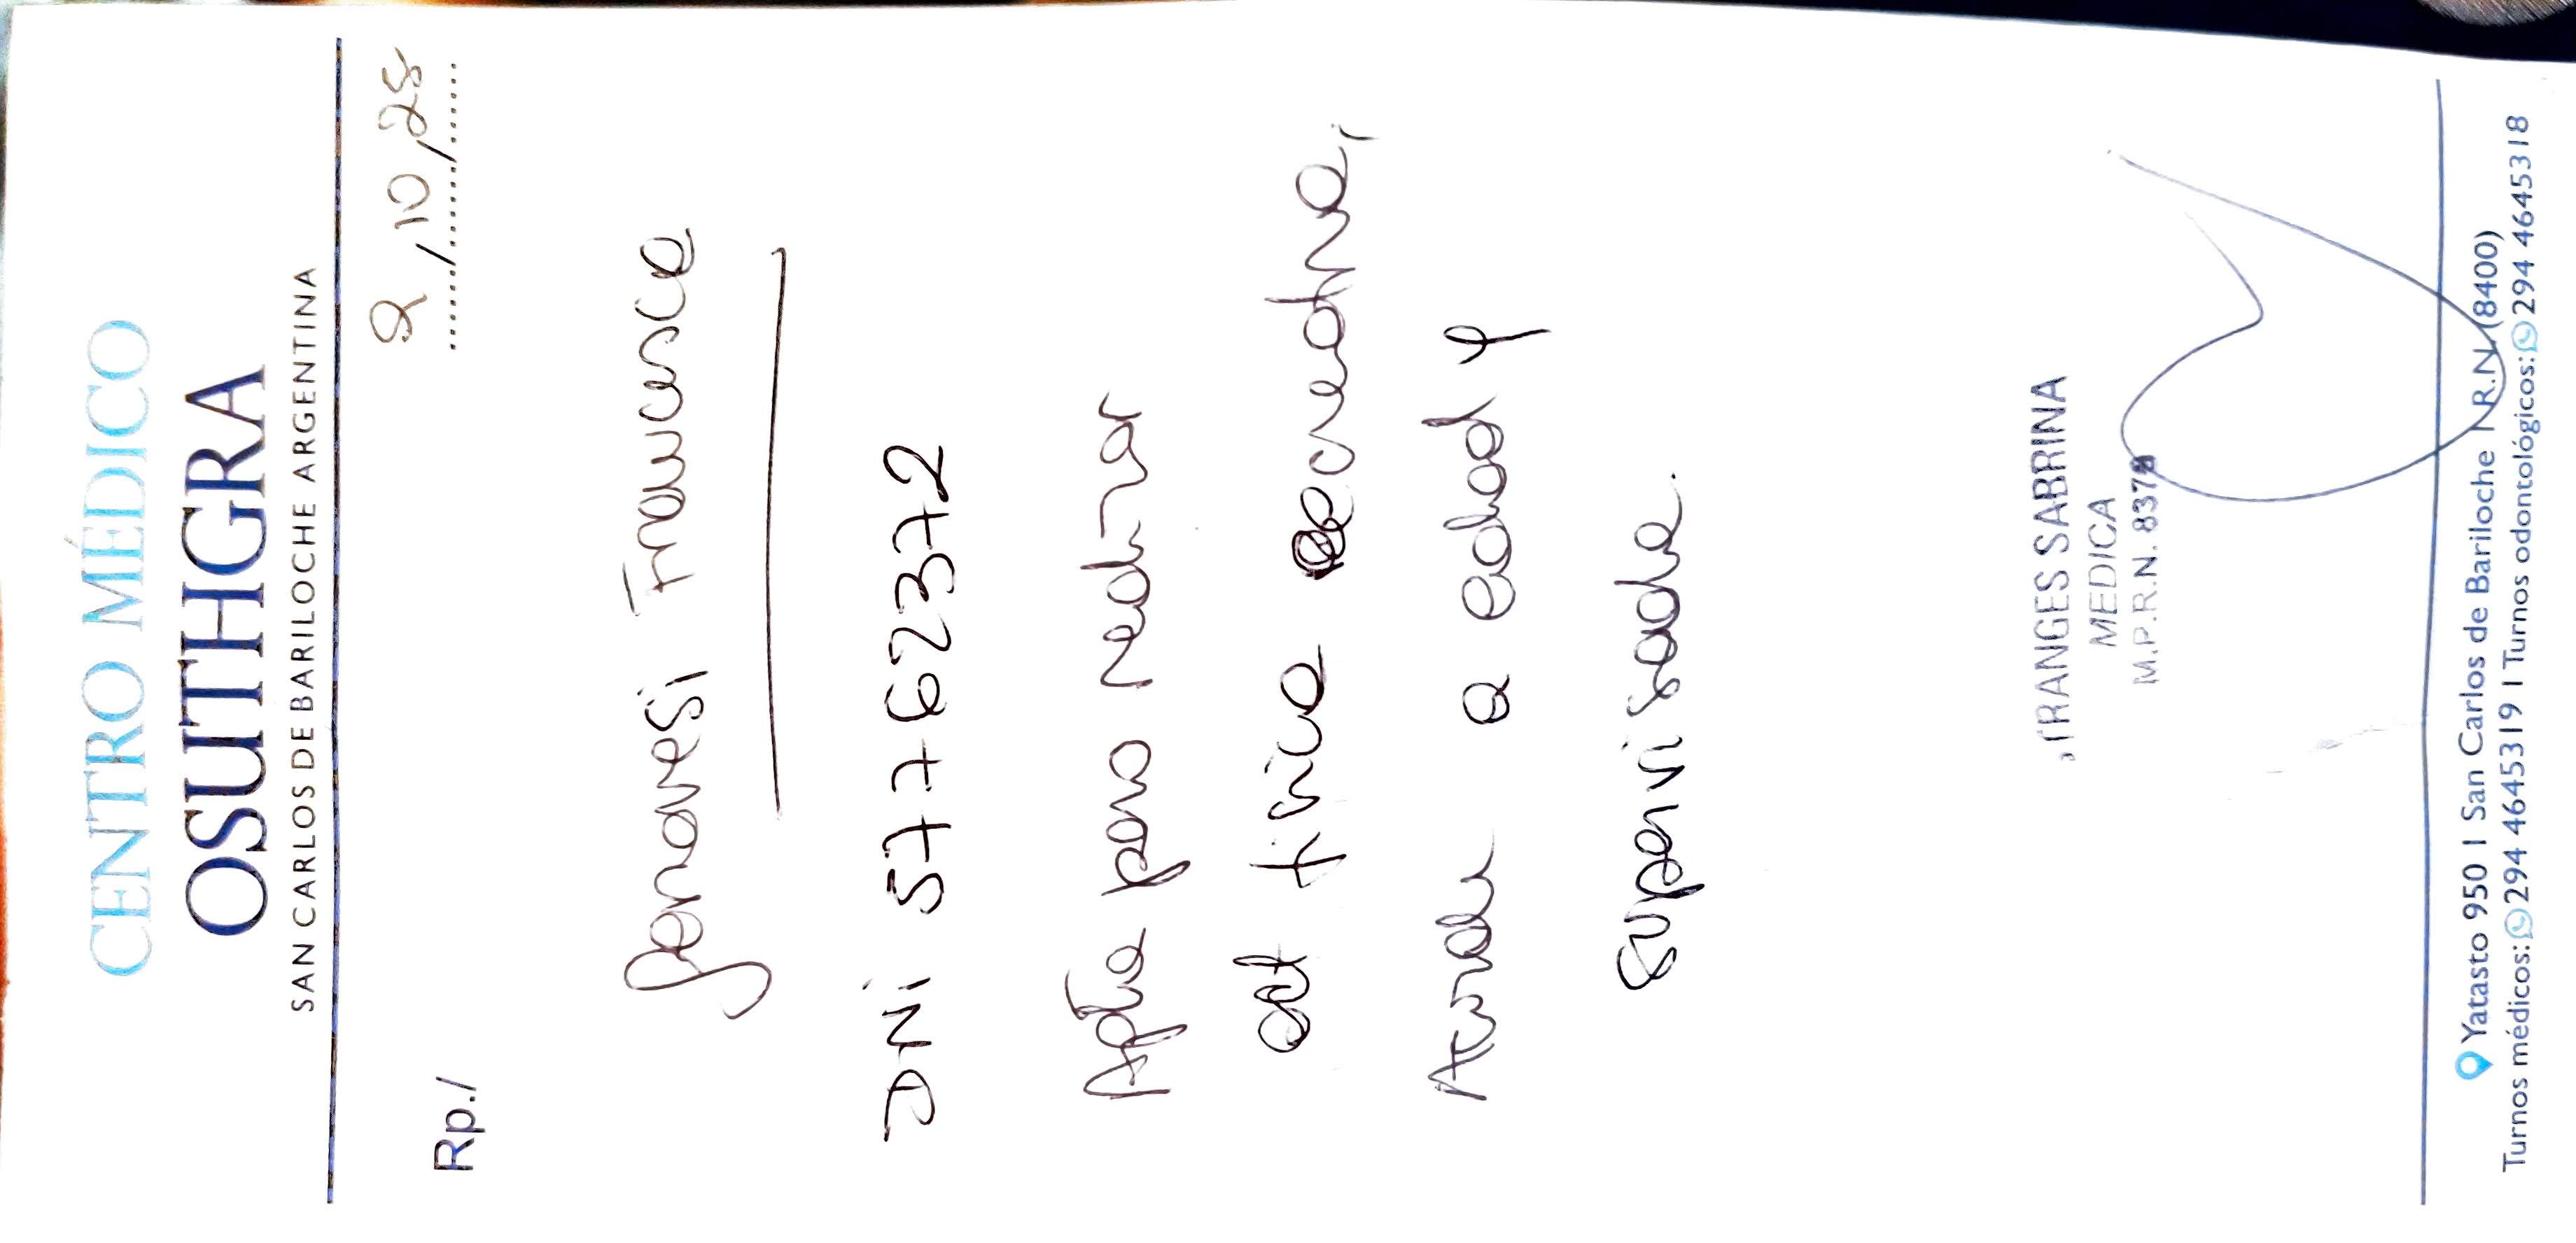 CENTRO MÉDICO
OSUTHGRA
SAN CARLOS DE BARILOCHE ARGENTINA
2/10/25
Rp./
Genovesi Francesca
DNi 57762372
Apta para realizar
act física recreativa,
Acorde a edad y
supervisada.
TRANGES SABRINA
MEDICA
M.P.R.N.
Yatasto 950 | San Carlos de Bariloche | R.N. (8400)
Turnos médicos: 294 4645319 | Turnos odontológicos: 294 4645318